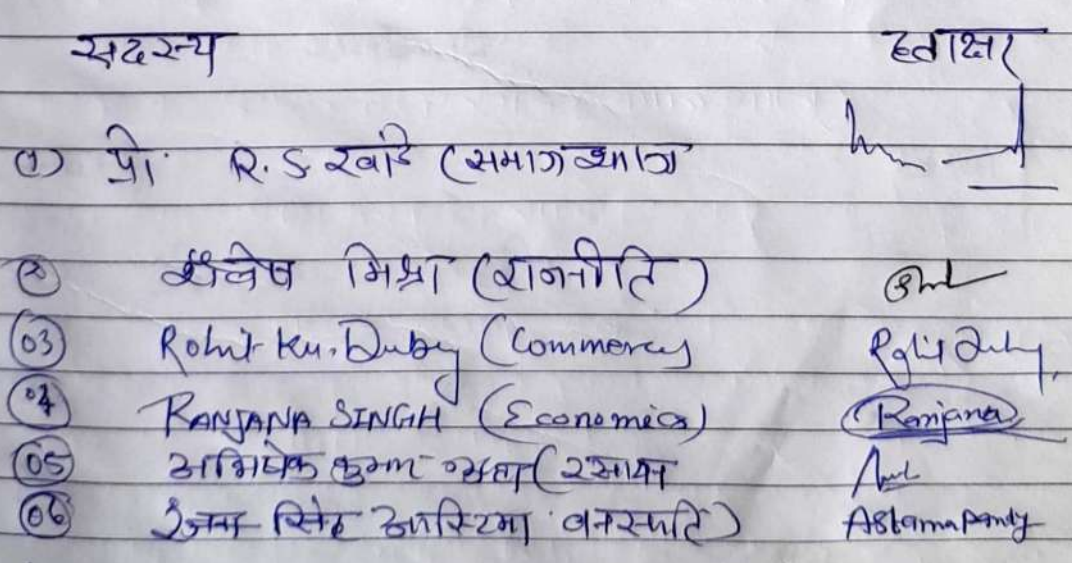 सदस्य हस्ताक्षर
(1) प्रो. R. S खांडे (समाज शास्त्र
(2) शैलेष मिश्रा (राजनीति)
(03) Rohit Ku. Dubey (Commerce) Rohit Dubey
(04) RANJANA SINGH (Economics) Ranjana
(05) अभिषेक कुमार (रसायन
(06) सिंह वनस्पति)